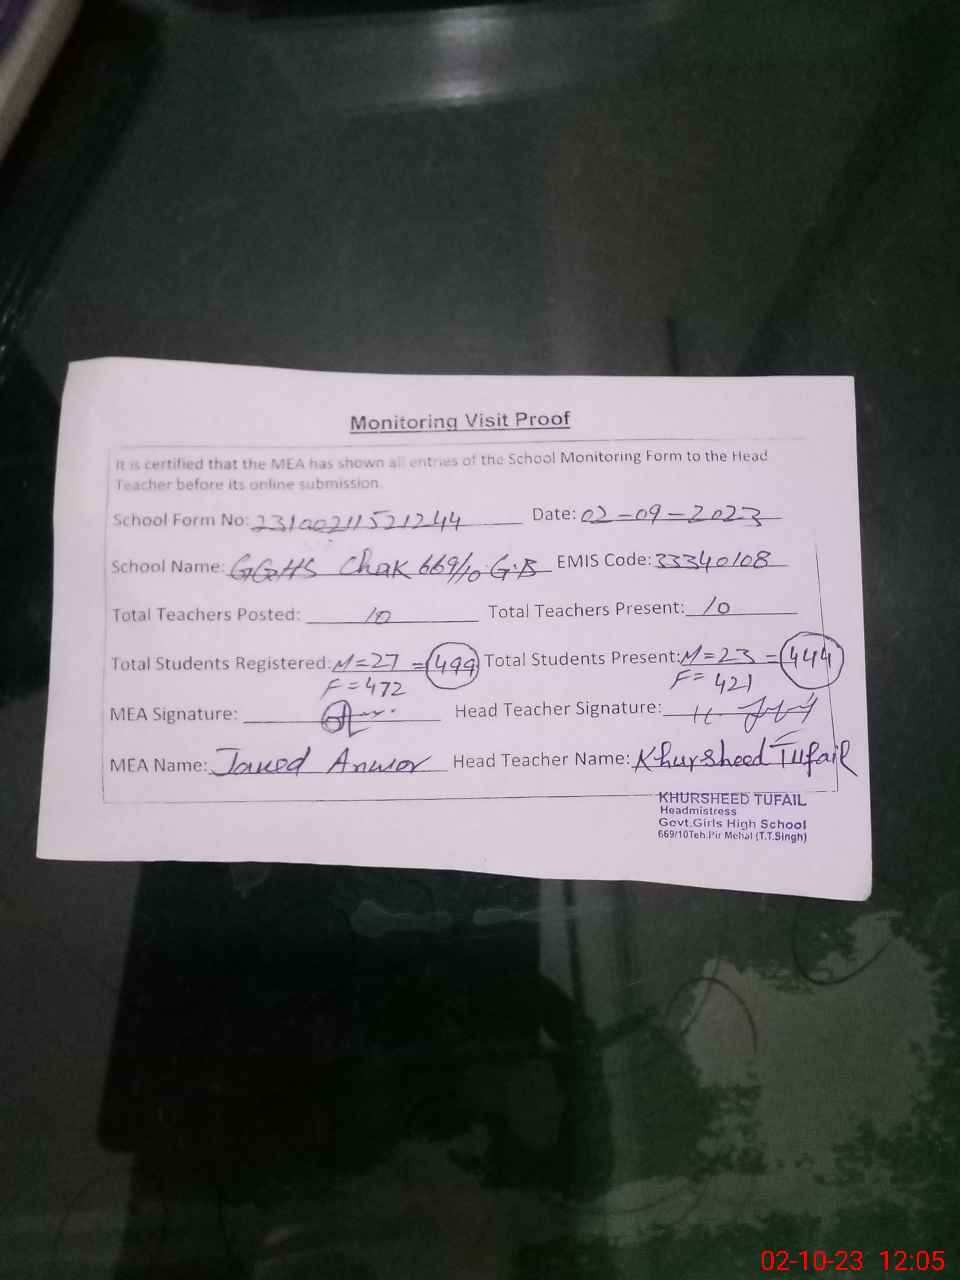 Monitoring Visit Proof
It is certified that the MEA has shown all entries of the School Monitoring Form to the Head
Teacher before its online submission.
School Form No: 23100211521244 Date: 02-09-2023
School Name: GGHS Chak 669/10 G.B EMIS Code: 33340108
Total Teachers Posted: 10 Total Teachers Present: 10
Total Students Registered: M=27 = 499 Total Students Present: M=23 = 444
F=472 F=421
MEA Signature: Head Teacher Signature:
MEA Name: Javed Anwar Head Teacher Name: Khursheed Tufail
KHURSHEED TUFAIL
Headmistress
Govt.Girls High School
669/10Teh.Pir Mehal (T.T.Singh)
02-10-23 12:05